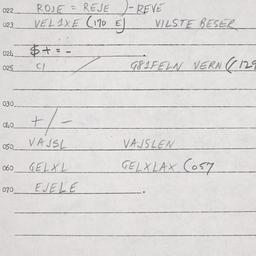 022 ROJE = REJE )-REVE
023 VEL1XE (170 E) VILSTE BESER
024 $+=-
025 C1 / G81FELN VERN ((129
030
040 +/-
050 VAJSL VAJSLEN
060 GELXL GELXLAX (057
070 EJELE .